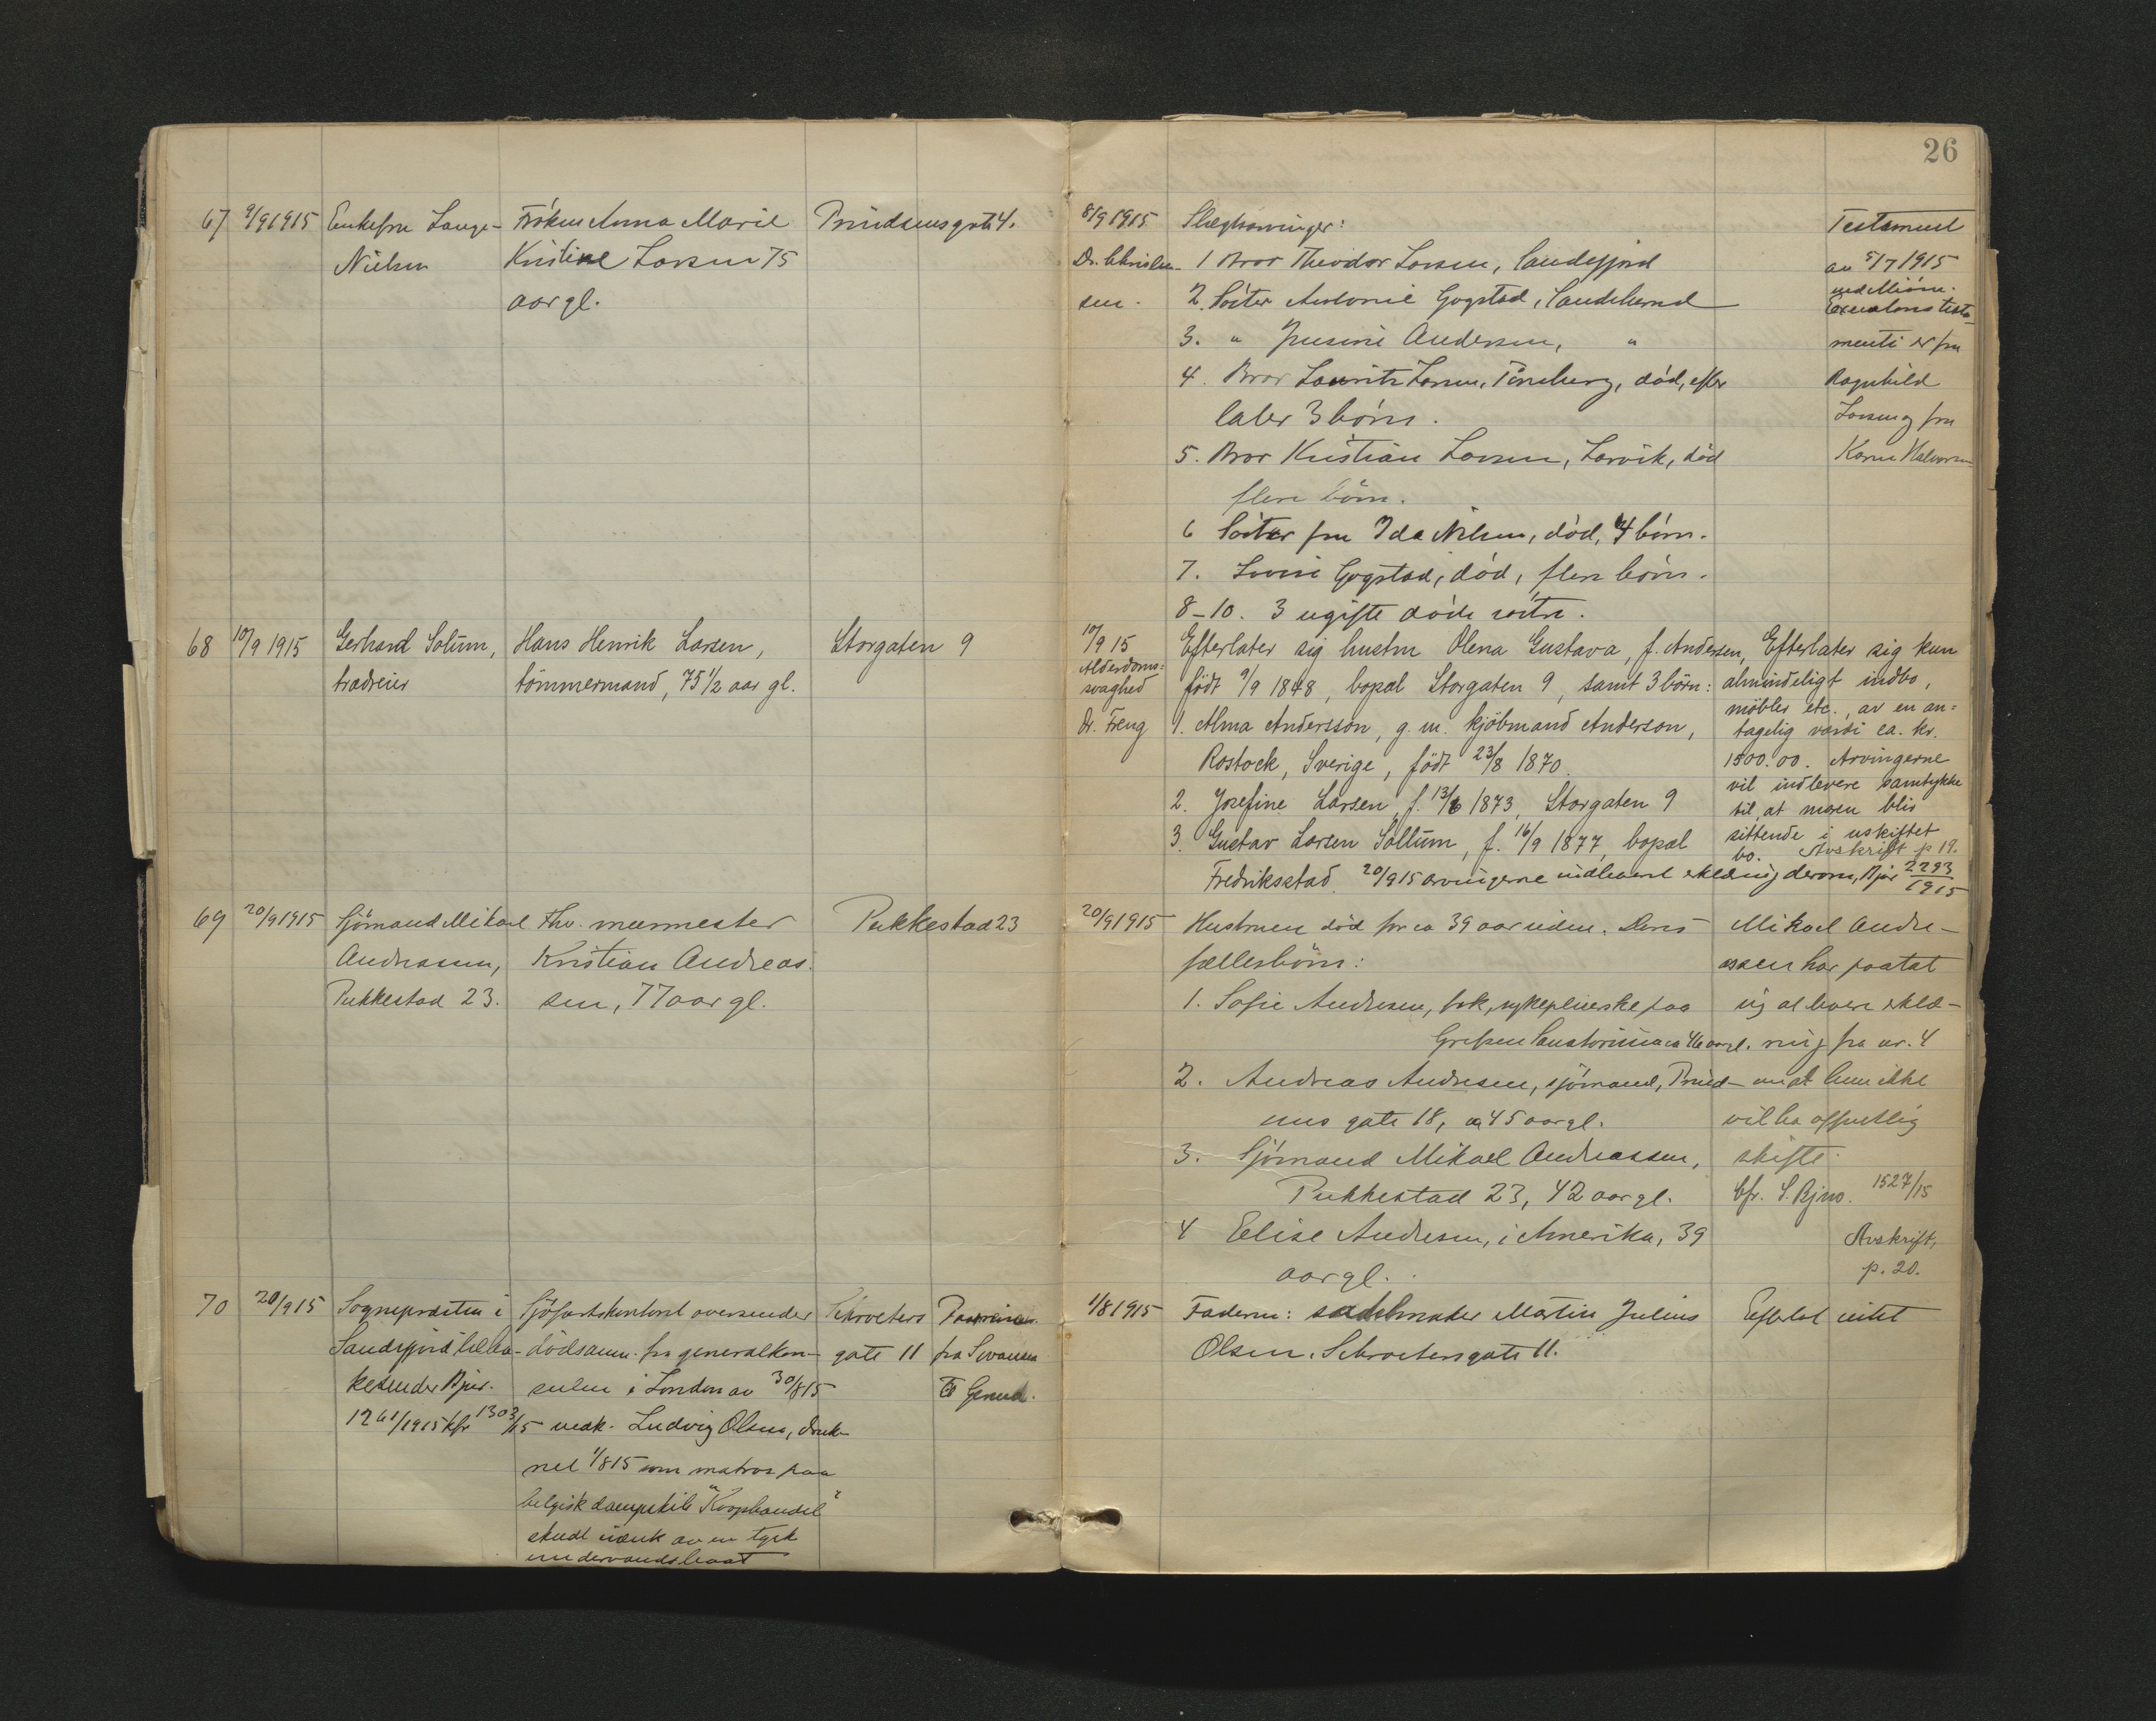 26
67 9/9 1915 Enkefru Lange- Frøken Anna Marie Prindsensgate 4.
Nielsen Kristine Larsen 75
aar gl.
8/9 1915 Slegtsarvinger: Testament
Dr. Christen- 1 Bror Theodor Larsen, Sandefjord av 5/7 1915
sen. 2. Søster Antonie Gogstad, Sandeherred
3. " Josefine Andersen, " menti er fru
4. Bror Lauritz Larsen, Tønsberg, død, efter Ragnhild
later 3 børn. Larsen og fru
5. Bror Kristian Larsen, Larvik, død Karen Halvorsen
flere børn.
6 Søster fru Ida Nilsen, død, 4 børn.
7. Lovise Gogstad, død, flere børn.
8-10. 3 ugifte døde søstre.
68 10/9 1915 Gerhard Solum, Hans Henrik Larsen, Storgaten 9
tømmermand, 75 1/2 aar gl.
10/9 15 Efterlater sig hustru Olena Gustava, f. Andersen, Efterlater sig kun
Alderdoms=
svaghed født 9/9 1848, bopæl Storgaten 9, samt 3 børn: almindeligt indbo,
møbler etc., av en an=
Dr. Freng 1. Alma Andersson, g. m. kjøbmand Anderson, tagelig værdi ca. kr.
Rostock, Sverige, født 23/8 1870. 1500.00. Arvingerne
vil indlevere samtykke
2. Josefine Larsen, f. 13/6 1873, Storgaten 9 til, at moren blir
3. Gustav Larsen Sollum, f. 16/9 1877, bopæl sittende i uskiftet
bo. Avskrift p 19.
Fredriksstad. 20/9 15 arvingerne indlevert erklæring derom, Bjur 2293/1915
69 20/9 1915 Sjømand Mikael Fhv. murmester Pukkestad 23
Andreassen, Kristian Andreas-
Pukkestad 23. sen, 77 aar gl.
20/9 1915 Hustruen død for ca 39 aar siden. Deres Mikael Andre-
fællesbørn: assen har paatat
1. Sofie Andresen, frk, sykepleierske paa sig at levere erklæ-
Grefsen Sanatorium ca 46 aar gl. ring fra nr. 4
2. Andreas Andresen, sjømand, Prind- om at hun ikke
sens gate 18, ca 45 aar gl. vil ha offentlig
3. Sjømand Mikael Andreassen, skifte.
Pukkestad 23, 42 aar gl. Cfr. S. Bjno. 1527/15
4 Elise Andresen, i Amerika, 39 Avskrift,
aar gl. p. 20.
70 20/9 15 Sognepresten i Sjøfartskontoret oversender Schroeters
Sandefjord tilba- dødsanm. fra generalkon- gate 11 fra Swansea
kesender Bjur. sulen i London av 30/8 15
1261/1915 kfr 1303/15 Ludvig Olsen, druk-
net 1/8 15 som matros paa
belgisk dampskib "Koophandel"
skudt i senk av en tysk
undervandsbaat
1/8 1915 Faderen: sadelmaker Martin Julius Efterlot intet
Olsen, Schroetersgate 11.